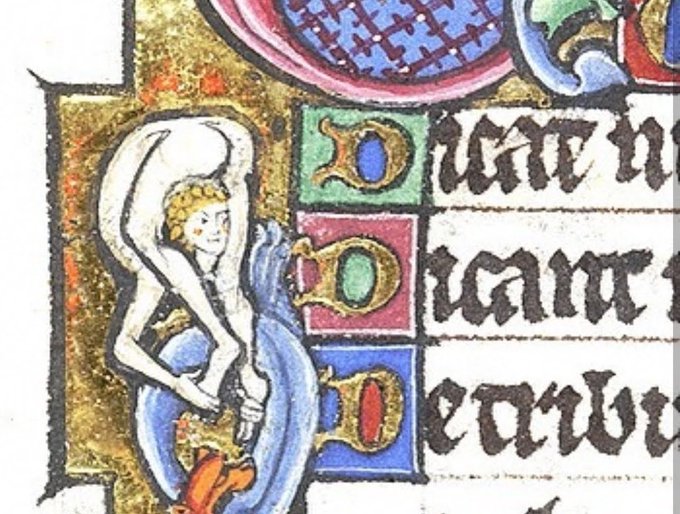 Dicat
Dicant
Detribu